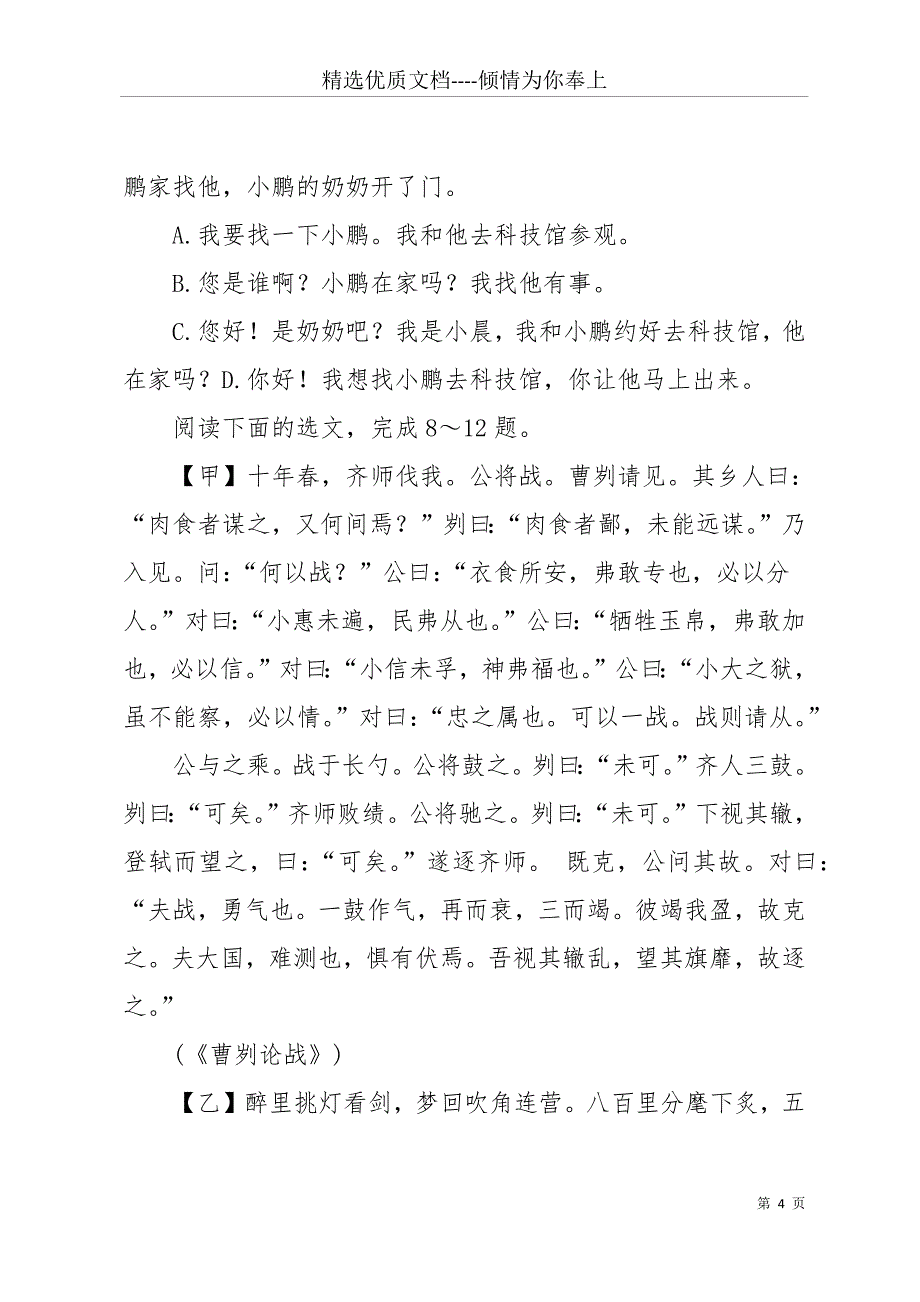 精选优质文档----倾情为你奉上
鹏家找他，小鹏的奶奶开了门。
A.我要找一下小鹏。我和他去科技馆参观。
B.您是谁啊？小鹏在家吗？我找他有事。
C.您好！是奶奶吧？我是小晨，我和小鹏约好去科技馆，他
在家吗？D.你好！我想找小鹏去科技馆，你让他马上出来。
阅读下面的选文，完成8～12题。
【甲】十年春，齐师伐我。公将战。曹刿请见。其乡人曰：
“肉食者谋之，又何间焉？”刿曰：“肉食者鄙，未能远谋。”乃
入见。问：“何以战？”公曰：“衣食所安，弗敢专也，必以分
人。”对曰：“小惠未遍，民弗从也。”公曰：“牺牲玉帛，弗敢加
也，必以信。”对曰：“小信未孚，神弗福也。”公曰：“小大之狱，
虽不能察，必以情。”对曰：“忠之属也。可以一战。战则请从。”
公与之乘。战于长勺。公将鼓之。刿曰：“未可。”齐人三鼓。
刿曰：“可矣。”齐师败绩。公将驰之。刿曰：“未可。”下视其辙，
登轼而望之，曰：“可矣。”遂逐齐师。 既克，公问其故。对曰：
“夫战，勇气也。一鼓作气，再而衰，三而竭。彼竭我盈，故克
之。夫大国，难测也，惧有伏焉。吾视其辙乱，望其旗靡，故逐
之。”
(《曹刿论战》)
【乙】醉里挑灯看剑，梦回吹角连营。八百里分麾下炙，五
第 4 页